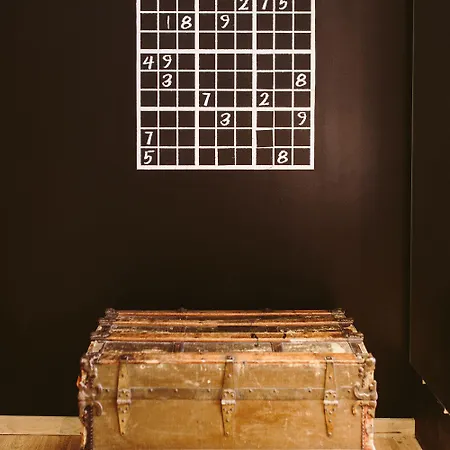 2 7 5
1 8 9
4 9
3 8
7 2
3 9
7
5 8